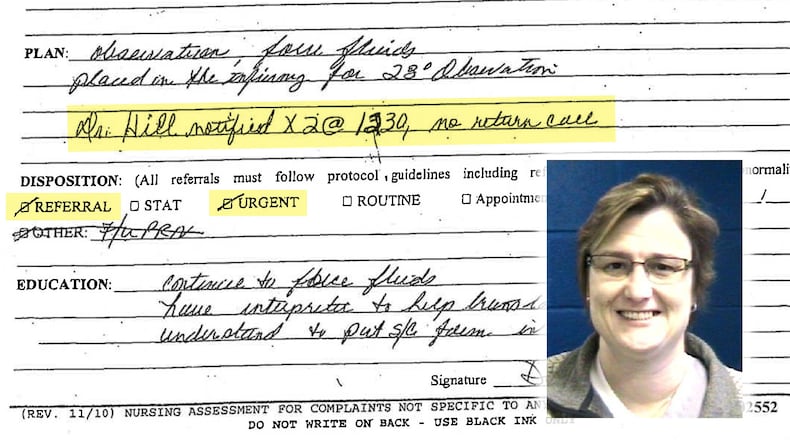 PLAN: observation, force fluids
placed in the infirmary for 23° Observation
Dr. Hill notified X 2 @ 1230, no return call
DISPOSITION: (All referrals must follow protocol guidelines including
REFERRAL STAT URGENT ROUTINE
OTHER: F/U PRN
EDUCATION: continue to force fluids
have interpreter to help
understand to put s/c form in
Signature
(REV. 11/10) NURSING ASSESSMENT FOR COMPLAINTS NOT SPECIFIC TO 2552
DO NOT WRITE ON BACK - USE BLACK INK ONLY